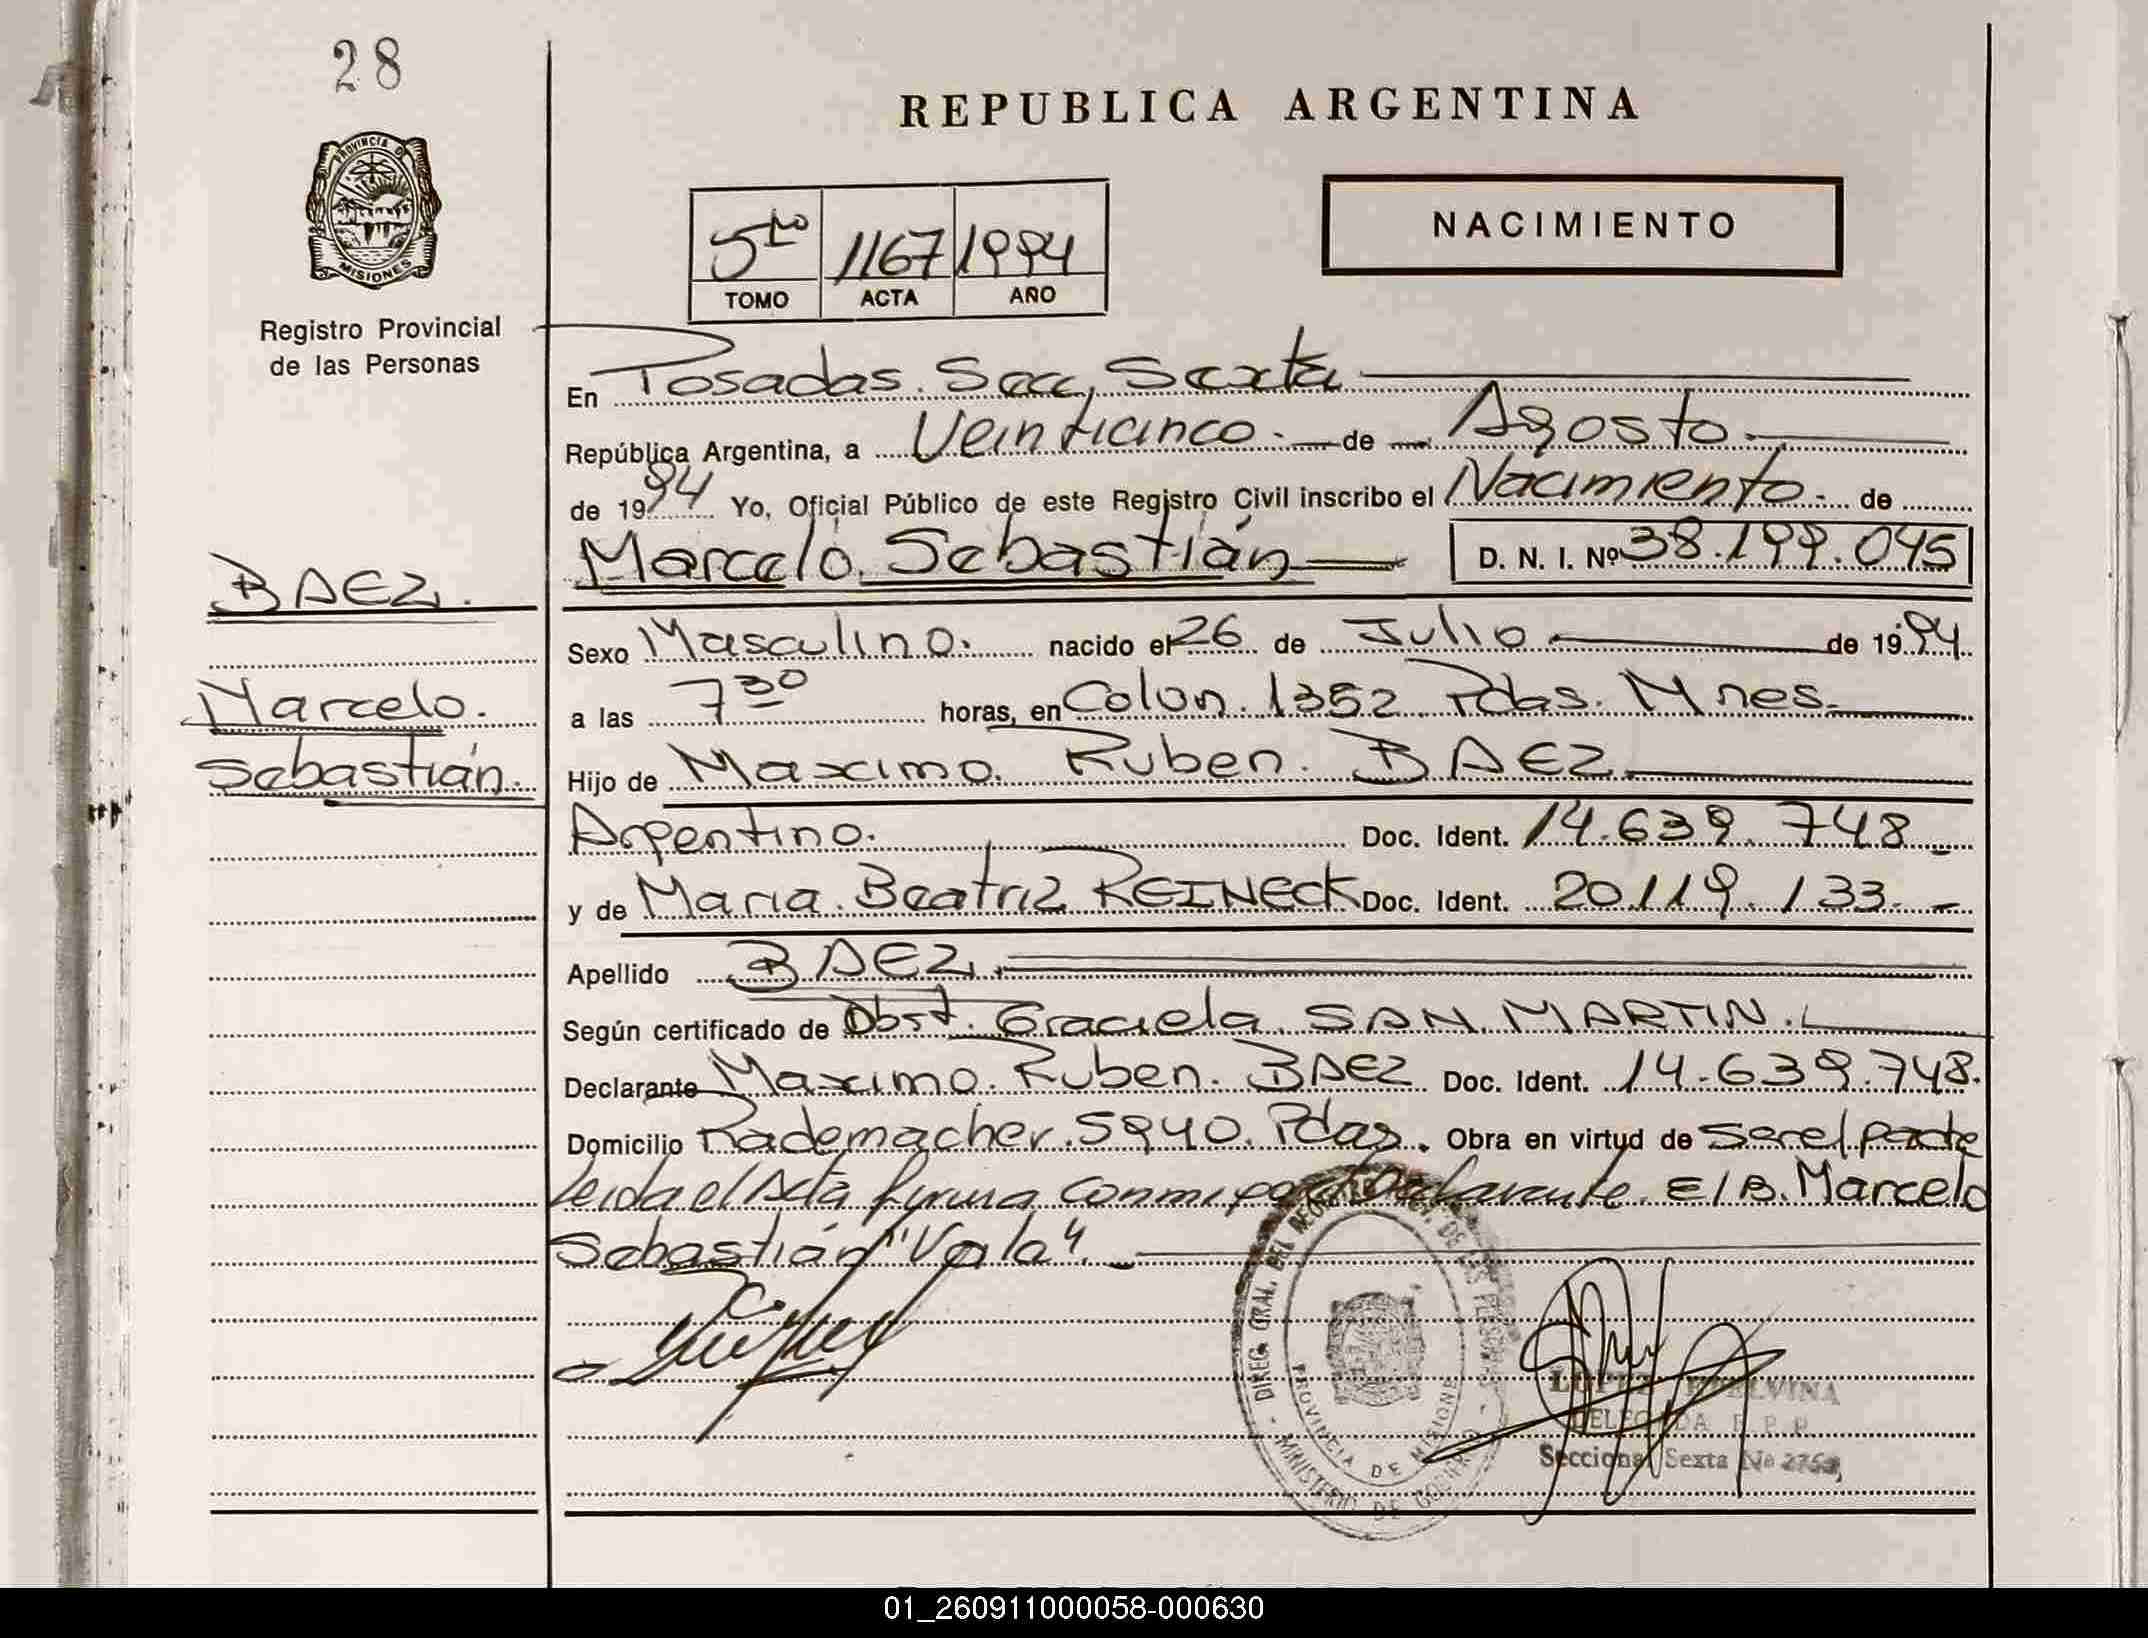 28
PROVINCIA DE
MISIONES
Registro Provincial
de las Personas
REPUBLICA ARGENTINA
NACIMIENTO
5to 1167 1994
TOMO ACTA AÑO
En Posadas. Secc, Sexta
República Argentina, a Veinticinco.- de Agosto.-
de 1994 Yo, Oficial Público de este Registro Civil inscribo el Nacimiento.- de
Marcelo. Sebastián D. N. I. Nº 38.199.045
BAEZ.
Marcelo.
Sebastián.
Sexo Masculino. nacido el 26 de Julio.- de 1994.
a las 7 30 horas, en Colon. 1352 Pdas. Mnes.-
Hijo de Maximo. Ruben. BAEZ.
Argentino. Doc. Ident. 14.639.748.-
y de Maria. Beatriz REINECK Doc. Ident. 20.119.133.-
Apellido BAEZ.
Según certificado de Obst. Graciela. SAN MARTIN.
Declarante Maximo. Ruben. BAEZ Doc. Ident. 14.639.748.
Domicilio Rademacher. 5940. Pdas. Obra en virtud de ser el padre
leida el Acta firma conmigo el Declarante. E/B. Marcelo
Sebastián "Vale".-
DIREG. GRAL. DEL REGISTRO DE LAS PERSONAS
PROVINCIA DE MISIONES
MINISTERIO DE GOBIERNO
LOPEZ
DELEGADA R. P. P.
Seccional Sexta No
01_260911000058-000630